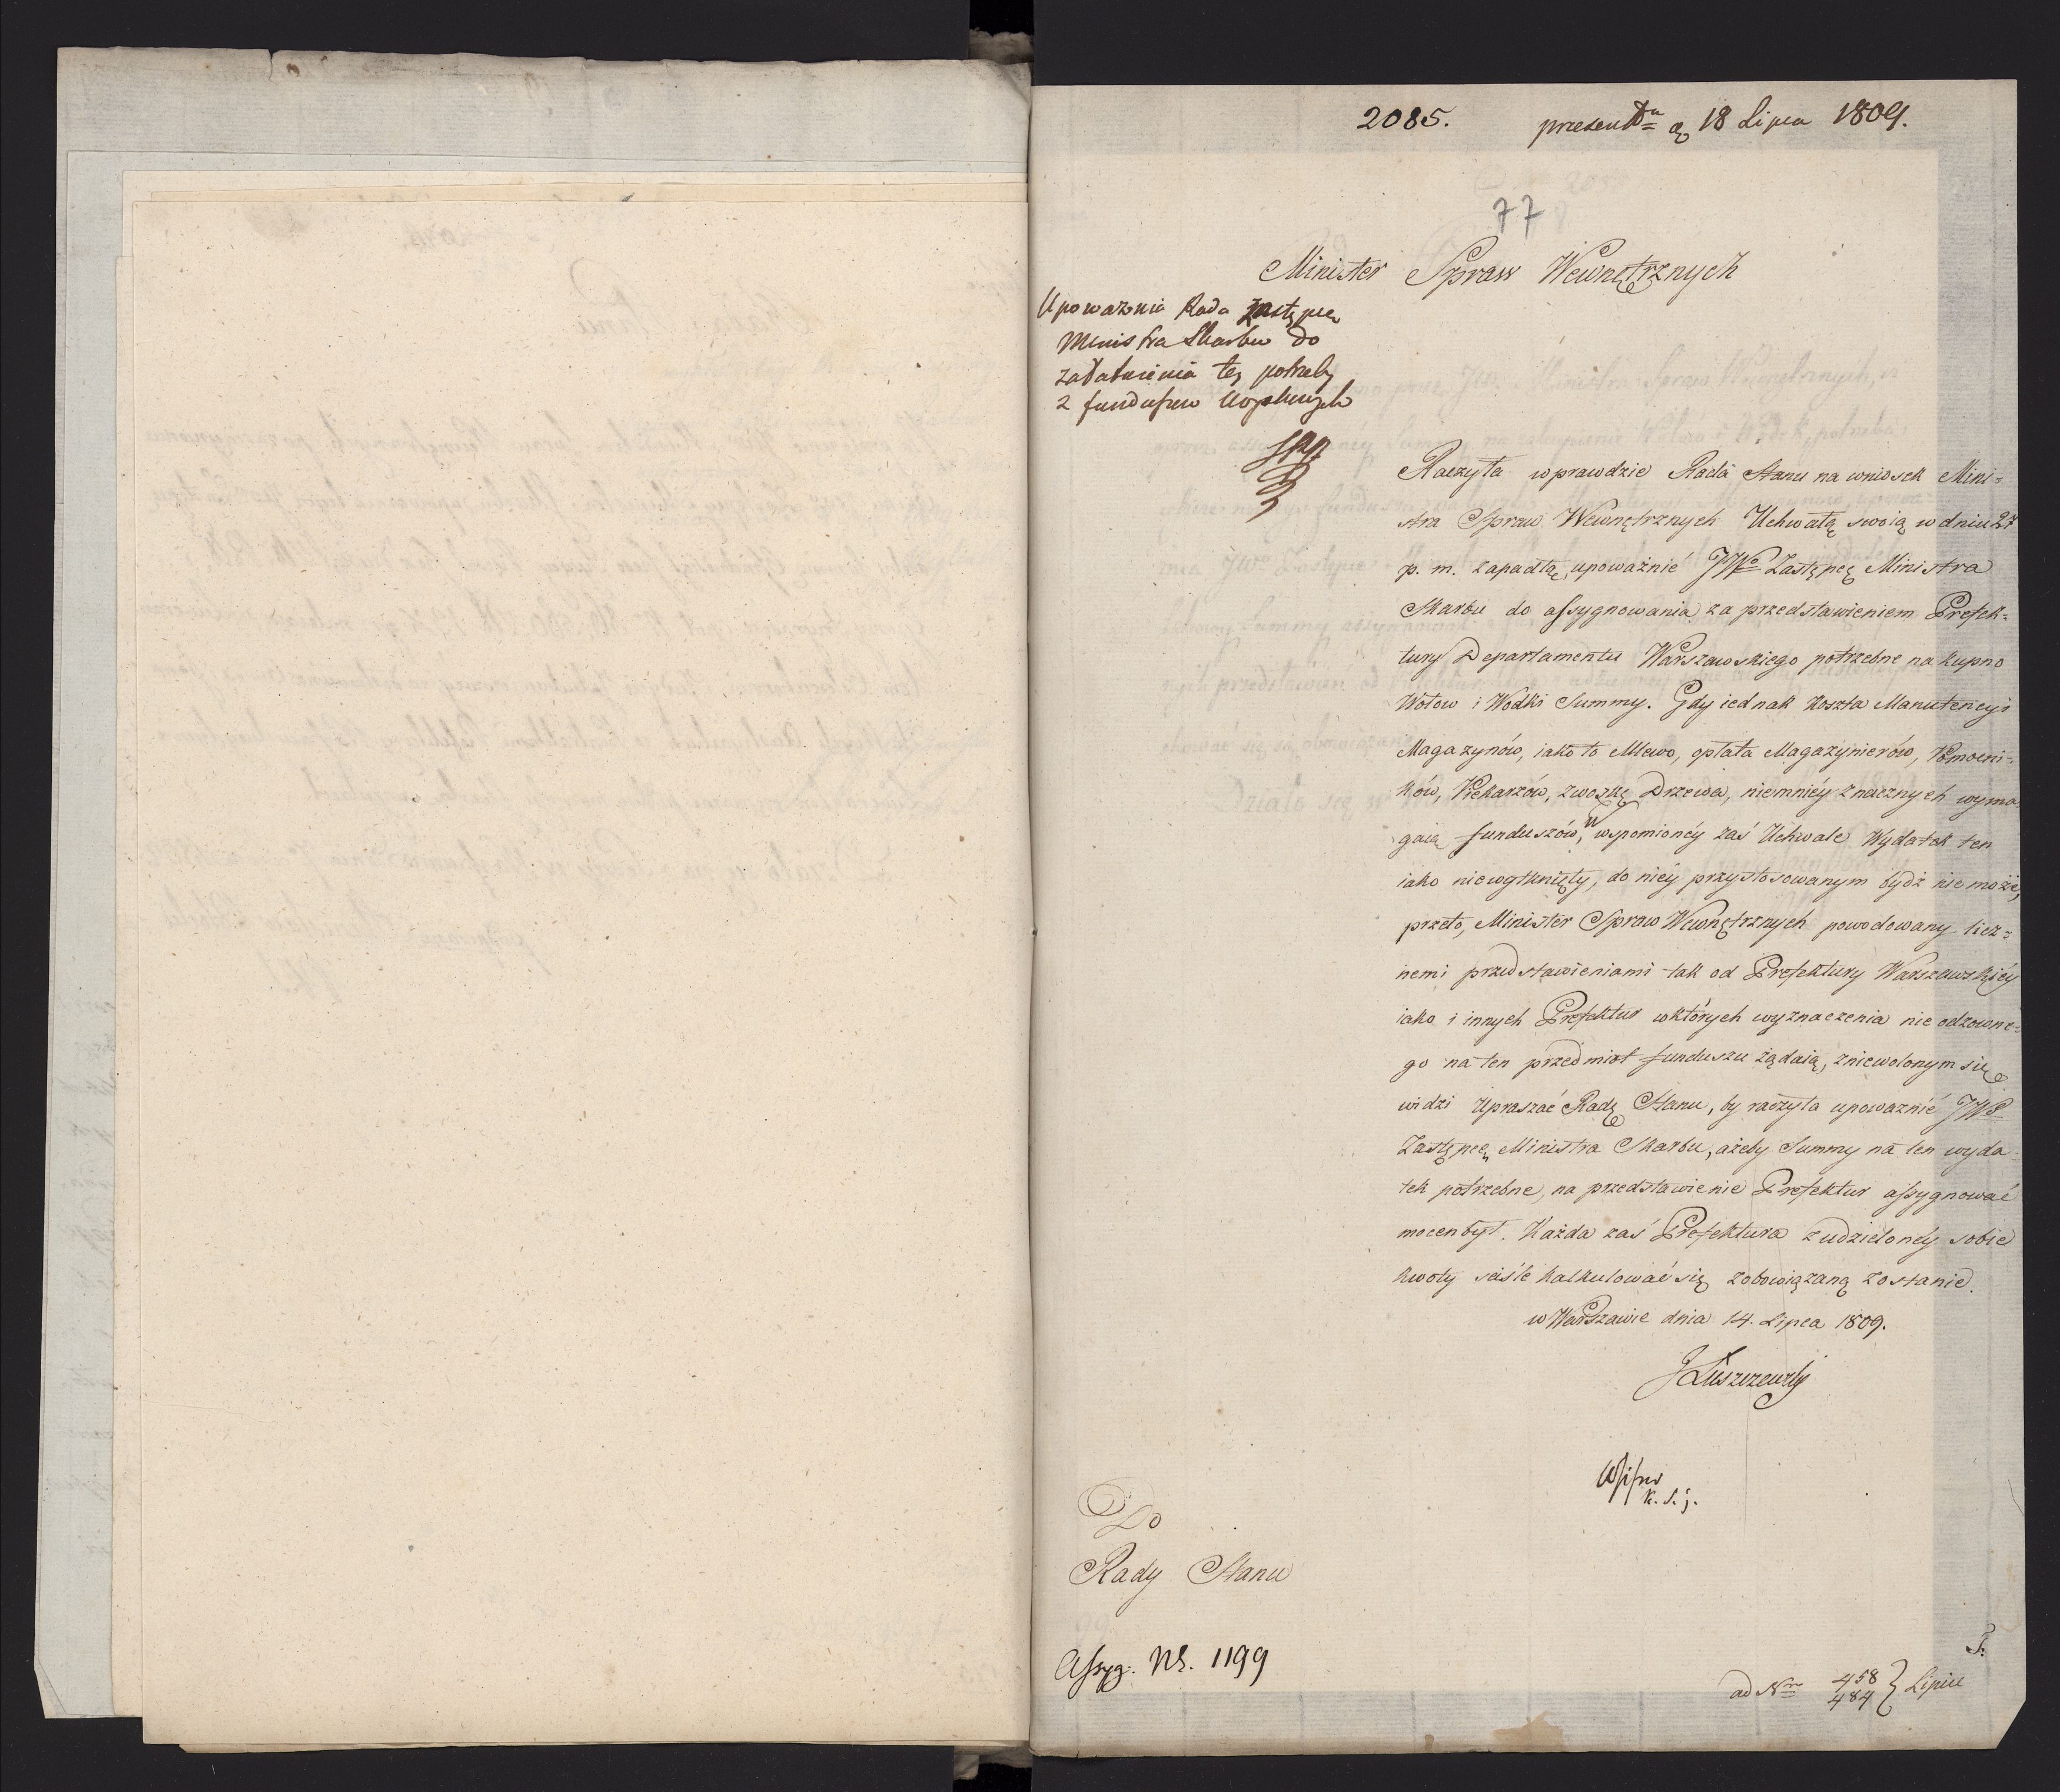 2085. 18 Lipca 1809.
77
Minister Spraw Wewnętrznych
Upoważnia Rada Zastępcę
Ministra Skarbu do
załatwienia tey potrzeby
z funduszu
Raczyła wprawdzie Rada Stanu na wniosek Mini=
stra Spraw Wewnętrznych Uchwałą swoią w dniu 27
p. m. zapadłą, upoważnić JWo Zastępcę Ministra
Skarbu do assygnowania za przedstawieniem Prefek=
tury Departamentu Warszawskiego potrzebne na kupno
Wołow i Wodki Summy. Gdy iednak koszta Manutencyi
Magazynów, iako to Mlewo, opłata Magazynierów, Pomocni=
ków, Piekarzów, zwozkę Drzewa, niemniéy znacznych wyma
gaią funduszów, w wspomionéy zaś Uchwale Wydatek ten
iako niewytknięty, do niéy przystosowanym bydź nie może,
przeto, Minister Spraw Wewnętrznych powodowany licz=
nemi przedstawieniami tak od Prefektury Warszawskiéy
iako i innych Prefektur w których wyznaczenia nieodzowne=
go na ten przedmiot funduszu żądaią, zniewolonym się
widzi upraszać Radę Stanu, by raczyła upoważnić JWo
Zastępcę Ministra Skarbu, ażeby Summy na ten wyda
tek potrzebne, na przedstawienie Prefektur assygnować
mocen był. Każda zaś Prefektura z udzielonéy sobie
kwoty ściśle kalkulować się zobowiązaną zostanie.
w Warszawie dnia 14. Lipca 1809.
J Łuszczewski
k. S. j.
Do
Rady Stanu
Assyg: Nr. 1199
ad Nrm 458
484 } Lipiec